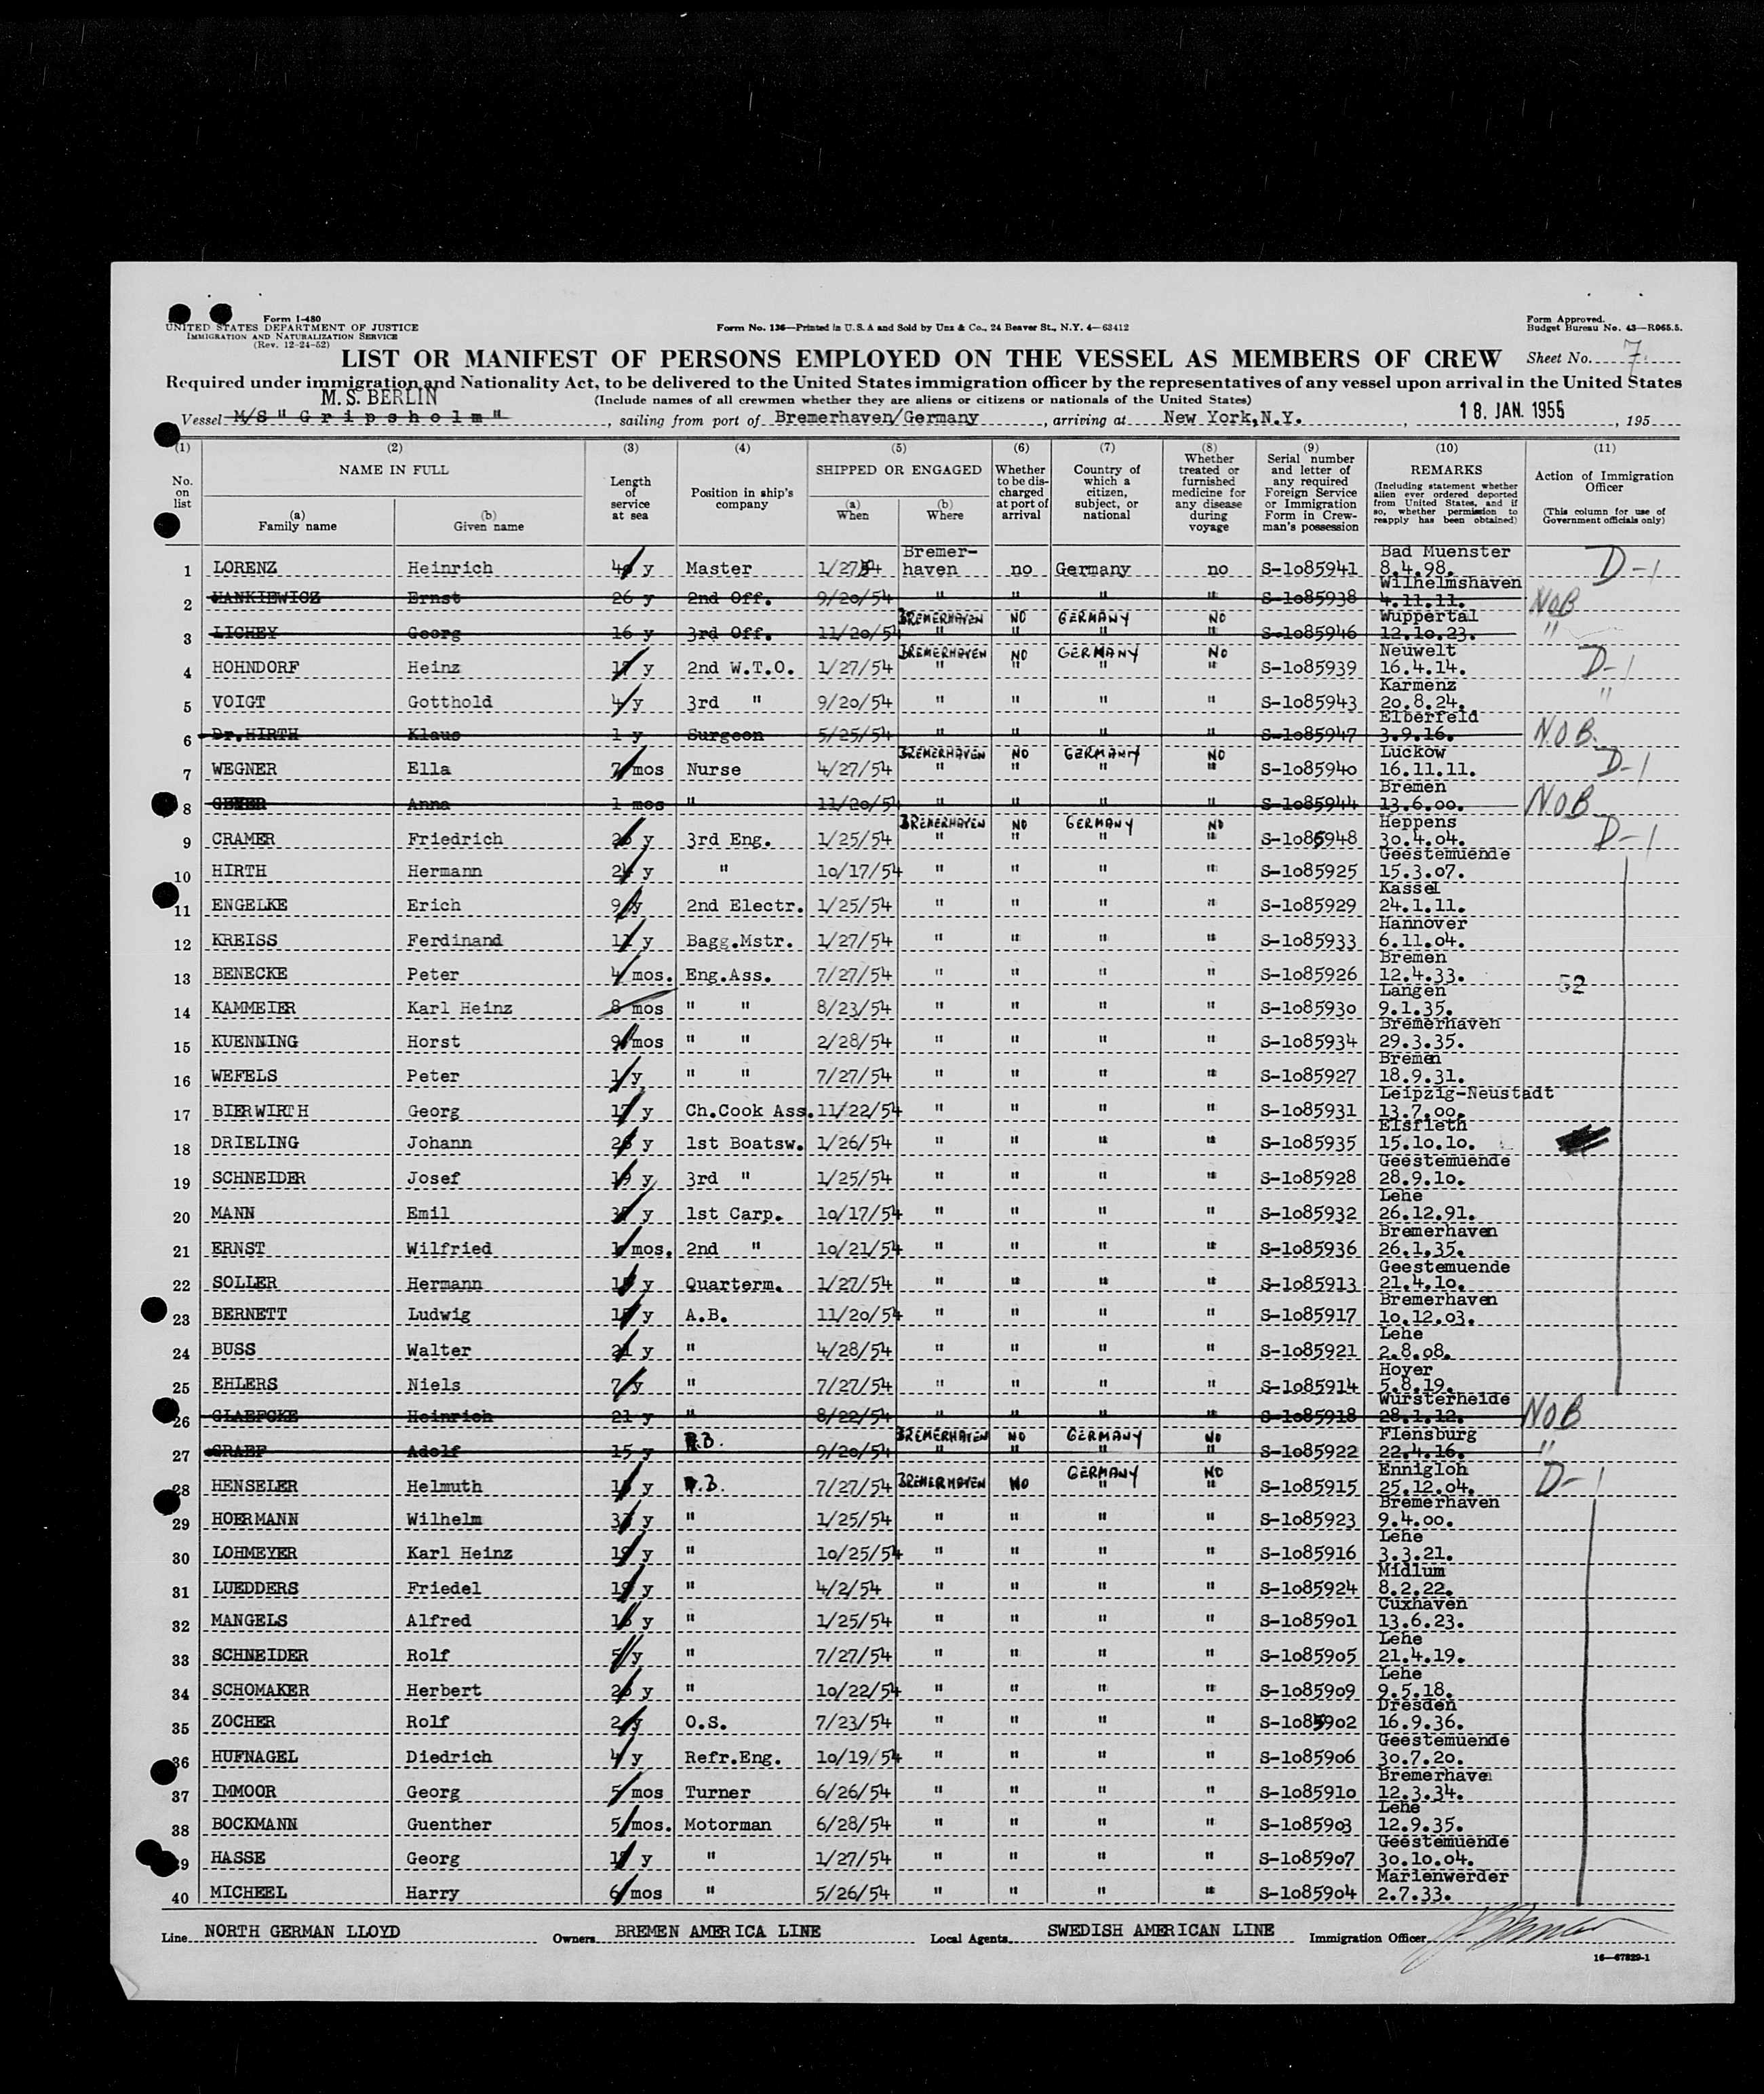 Form I-480
UNITED STATES DEPARTMENT OF JUSTICE
IMMIGRATION AND NATURALIZATION SERVICE
(Rev. 12-24-52)
Form No. 136—Printed in U.S.A and Sold by Unz & Co., 24 Beaver St., N.Y. 4—63412
Form Approved.
Budget Bureau No. 43—R065.5.
LIST OR MANIFEST OF PERSONS EMPLOYED ON THE VESSEL AS MEMBERS OF CREW
Sheet No. 7
Required under immigration and Nationality Act, to be delivered to the United States immigration officer by the representatives of any vessel upon arrival in the United States
M.S. BERLIN
(Include names of all crewmen whether they are aliens or citizens or nationals of the United States)
Vessel M/S "Gripsholm", sailing from port of Bremerhaven/Germany, arriving at New York,N.Y., 18. JAN. 1955, 195
(1) (2) (3) (4) (5) (6) (7) (8) (9) (10) (11)
No. on list
NAME IN FULL
(a) Family name
(b) Given name
Length of service at sea
Position in ship's company
SHIPPED OR ENGAGED
(a) When
(b) Where
Whether to be discharged at port of arrival
Country of which a citizen, subject, or national
Whether treated or furnished medicine for any disease during voyage
Serial number and letter of any required Foreign Service or Immigration Form in Crewman's possession
REMARKS
(Including statement whether alien ever ordered deported from United States, and if so, whether permission to reapply has been obtained)
Action of Immigration Officer
(This column for use of Government officials only)
1 LORENZ Heinrich y Master 1/27/54 Bremerhaven no Germany no S-1085941 Bad Muenster 8.4.98. D-1
2 MANKIEWICZ Ernst 26 y 2nd Off. 9/20/54 " " " " S-1085938 Wilhelmshaven 4.11.11. NOB
3 LICHEY Georg 16 y 3rd Off. 11/20/54 BREMERHAVEN " NO " GERMANY " NO " S-1085946 Wuppertal 12.10.23. "
4 HOHNDORF Heinz y 2nd W.T.O. 1/27/54 BREMERHAVEN " NO " GERMANY " NO " S-1085939 Neuwelt 16.4.14. D-1
5 VOIGT Gotthold 4 y 3rd " 9/20/54 " " " " S-1085943 Karmenz 20.8.24. "
6 Dr.HIRTH Klaus 1 y Surgeon 5/25/54 " " " " S-1085947 Elberfeld 3.9.16. N.O.B.
7 WEGNER Ella 7 mos Nurse 4/27/54 BREMERHAVEN " NO " GERMANY " NO " S-1085940 Luckow 16.11.11. D-1
8 GEYER Anna 1 mos " 11/20/54 " " " " S-1085944 Bremen 13.6.00. N.O.B
9 CRAMER Friedrich y 3rd Eng. 1/25/54 BREMERHAVEN " NO " GERMANY " NO " S-1085948 Heppens 30.4.04. D-1
10 HIRTH Hermann y " 10/17/54 " " " " S-1085925 Geestemuende 15.3.07.
11 ENGELKE Erich 9 y 2nd Electr. 1/25/54 " " " " S-1085929 Kassel 24.1.11.
12 KREISS Ferdinand y Bagg.Mstr. 1/27/54 " " " " S-1085933 Hannover 6.11.04.
13 BENECKE Peter 4 mos. Eng.Ass. 7/27/54 " " " " S-1085926 Bremen 12.4.33. 52
14 KAMMEIER Karl Heinz 8 mos " " 8/23/54 " " " " S-1085930 Langen 9.1.35.
15 KUENNING Horst 9 mos " " 2/28/54 " " " " S-1085934 Bremerhaven 29.3.35.
16 WEFELS Peter 1 y " " 7/27/54 " " " " S-1085927 Bremen 18.9.31.
17 BIERWIRTH Georg y Ch.Cook Ass. 11/22/54 " " " " S-1085931 Leipzig-Neustadt 13.7.00.
18 DRIELING Johann y 1st Boatsw. 1/26/54 " " " " S-1085935 Elsfleth 15.10.10.
19 SCHNEIDER Josef y 3rd " 1/25/54 " " " " S-1085928 Geestemuende 28.9.10.
20 MANN Emil y 1st Carp. 10/17/54 " " " " S-1085932 Lehe 26.12.91.
21 ERNST Wilfried mos. 2nd " 10/21/54 " " " " S-1085936 Bremerhaven 26.1.35.
22 SOLLER Hermann y Quarterm. 1/27/54 " " " " S-1085913 Geestemuende 21.4.10.
23 BERNETT Ludwig y A.B. 11/20/54 " " " " S-1085917 Bremerhaven 10.12.03.
24 BUSS Walter y " 4/28/54 " " " " S-1085921 Lehe 2.8.08.
25 EHLERS Niels 7 y " 7/27/54 " " " " S-1085914 Hoyer 5.8.19.
26 GLAEFCKE Heinrich 21 y " 8/22/54 " " " " S-1085918 Wursterheide 28.1.12. NOB
27 GRAEF Adolf 15 y A.B. 9/20/54 BREMERHAVEN " NO " GERMANY " NO " S-1085922 Flensburg 22.4.16. "
28 HENSELER Helmuth y A.B. 7/27/54 BREMERHAVEN NO GERMANY " NO " S-1085915 Ennigloh 25.12.04. D-1
29 HOERMANN Wilhelm y " 1/25/54 " " " " S-1085923 Bremerhaven 9.4.00.
30 LOHMEYER Karl Heinz y " 10/25/54 " " " " S-1085916 Lehe 3.3.21.
31 LUEDDERS Friedel y " 4/2/54 " " " " S-1085924 Midlum 8.2.22.
32 MANGELS Alfred y " 1/25/54 " " " " S-1085901 Cuxhaven 13.6.23.
33 SCHNEIDER Rolf 5 y " 7/27/54 " " " " S-1085905 Lehe 21.4.19.
34 SCHOMAKER Herbert y " 10/22/54 " " " " S-1085909 Lehe 9.5.18.
35 ZOCHER Rolf 2 y O.S. 7/23/54 " " " " S-1085902 Dresden 16.9.36.
36 HUFNAGEL Diedrich 4 y Refr.Eng. 10/19/54 " " " " S-1085906 Geestemuende 30.7.20.
37 IMMOOR Georg 5 mos Turner 6/26/54 " " " " S-1085910 Bremerhaven 12.3.34.
38 BOCKMANN Guenther 5 mos. Motorman 6/28/54 " " " " S-1085903 Lehe 12.9.35.
39 HASSE Georg y " 1/27/54 " " " " S-1085907 Geestemuende 30.10.04.
40 MICHEEL Harry 6 mos " 5/26/54 " " " " S-1085904 Marienwerder 2.7.33.
Line NORTH GERMAN LLOYD Owners BREMEN AMERICA LINE Local Agents SWEDISH AMERICAN LINE Immigration Officer
16—67829-1